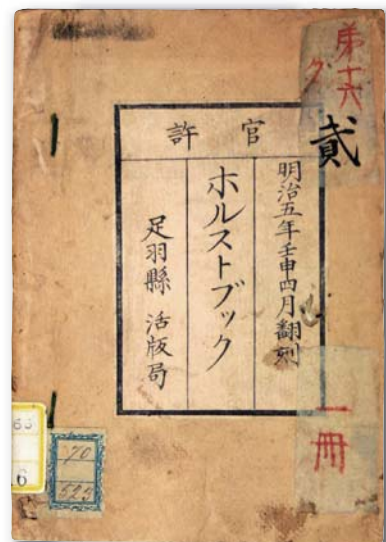 弟十六
貳
官許
明治五年壬申四月翻刻
ホルストブック
足羽縣 活版局
一冊
70
525